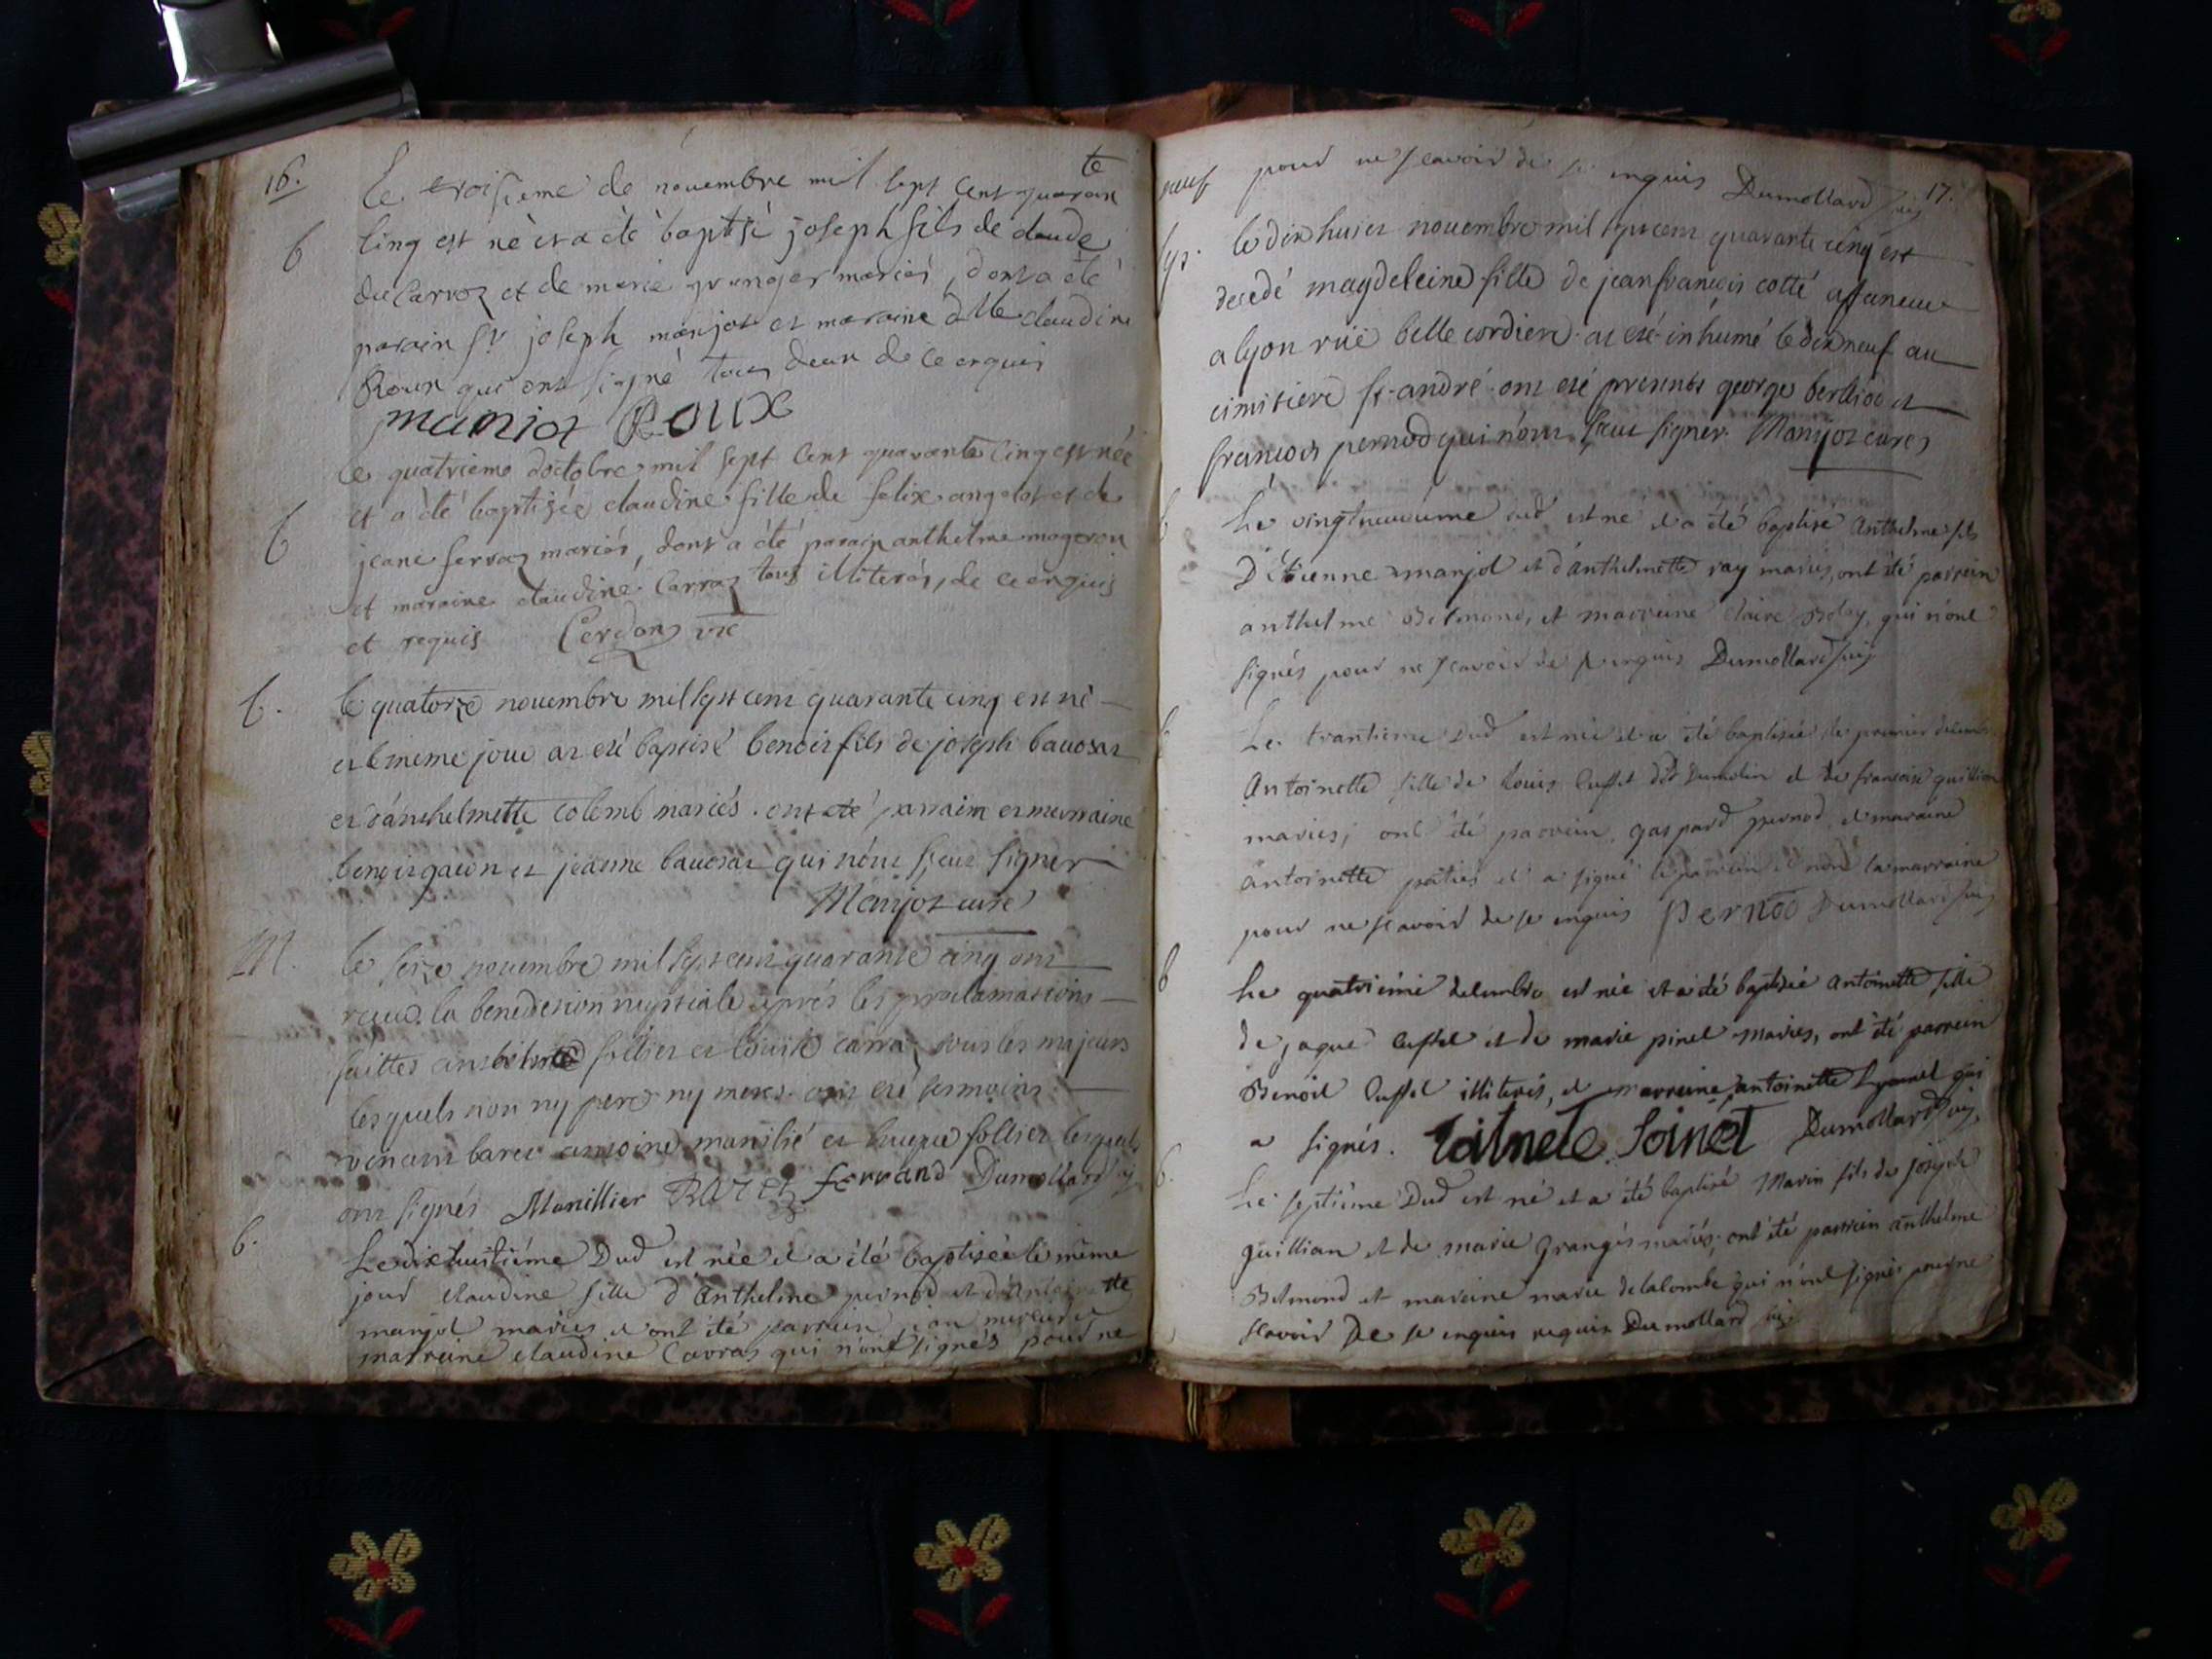 16.
Le troisieme de novembre mil sept cent quarante
b cinq est né et a été baptisé joseph fils de claude
du Carroz et de marie granger mariés, dont a été
parain sr joseph manjot et maraine dlle claudine
Roux qui ont signé tous deux de ce enquis
manjot Roux
Le quatrieme doctobre mil sept cent quarante cinq est née
b et a été baptizée claudine fille de felix angelot et de
jeane ferraz mariés, dont a été parain anthelme mogeron
et maraine claudine Carraz tous illiterés, de ce enquis
et requis Cerdon vic
b. le quatorze novembre mil sept cent quarante cinq est né
et le meme jour at eté baptisé benoit fils de joseph bavosat
et d'anthelmette colomb mariés. ont eté parrain et marraine
benoit gacon et jeanne bavosat qui n'ont sceut signer
Manjot curé
M. le seize novembre mil sept cent quarante cinq ont
receu la benediction nuptiale après les proclamations
faittes follier et louise carraz tous les majeurs
lesquels n'ont ny pere ny mere. ont eté temoins
baret antoine manilié et follier lesquels
ont signés Manillier Baret ferrand Dumollard vic
b. Le dixhuitiéme Dud est née et a été baptisée le même
jour claudine fille d'Anthelme pernod et d'Antoinette
manjot mariés et ont été parrain jean et
marraine claudine Carraz qui n'ont signés pour ne
17.
pour ne scavoir de ce enquis Dumollard vic
le dix huict novembre mil sept cent quarante cinq est
decedé magdeleine fille de jean françois cotté affaneur
a lyon rüe belle cordiere. at eté inhumé le dix neuf au
cimitiere st. andré. ont eté presents george berlioz et
françois pernod qui n'ont sceut signer. Manjot curé
b Le vingtneuvieme dud est né et a été baptisé Anthelme fils
D'étienne manjot et d'anthelmette ray mariés, ont été parrein
anthelme Belmond, et marreine claire Boley, qui n'ont
signés pour ne scavoir de ce enquis Dumollard vic
b Le trantieme Dud est née et a été baptisée le premier decembre
Antoinette fille de louis Cuffet dit Dumolin et de françoise quillion
mariés; ont été parrein gaspard pernod et maraine
antoinette et a signé le parrein et non la marraine
pour ne scavoir de ce enquis Pernod Dumollard vic
b Le quatriéme decembre est née et a été baptisée antoinette fille
de jaque Cuffet et de marie pinel mariés, ont été parrein
Benoit Cuffet illiterés, et marreine antoinette qui
a signés. Dumollard vic
b. Le septiéme Dud est né et a été baptisé Marin fils de joseph
quillian et de marie Grangés mariés; ont été parrein anthelme
Belmond et mareine marie delalombe qui n'ont signés pour ne
scavoir De ce enquis requis Dumollard vic